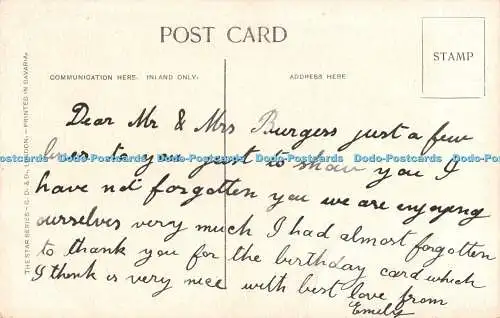 POST CARD
STAMP
COMMUNICATION HERE. INLAND ONLY.
ADDRESS HERE
THE STAR SERIES – G. D. & D., LONDON. – PRINTED IN BAVARIA.
Dear Mr & Mrs Burgess just a few
lines to you just to show you I
Dodo-Postcards Dodo-Postcards Dodo-Postcards Dodo-Postcards Dodo-Postcards Dodo-Postcards
have not forgotten you we are enjoying
ourselves very much I had almost forgotten
to thank you for the birthday card which
I think is very nice with best love from
Emily